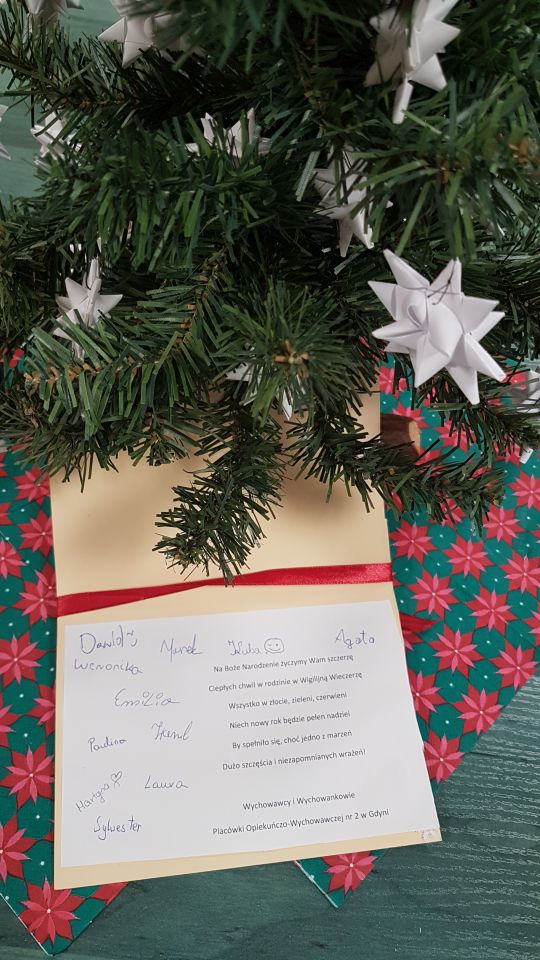 Dawid Marek Kuba Agata
Weronika
Emilia
Paulina
Martyna Laura
Sylwester
Na Boże Narodzenie życzymy Wam szczerze
Ciepłych chwil w rodzinie w Wigilijną Wieczerzę
Wszystko w złocie, zieleni, czerwieni
Niech nowy rok będzie pełen nadziei
By spełniło się, choć jedno z marzeń
Dużo szczęścia i niezapomnianych wrażeń!
Wychowawcy i Wychowankowie
Placówki Opiekuńczo-Wychowawczej nr 2 w Gdyni